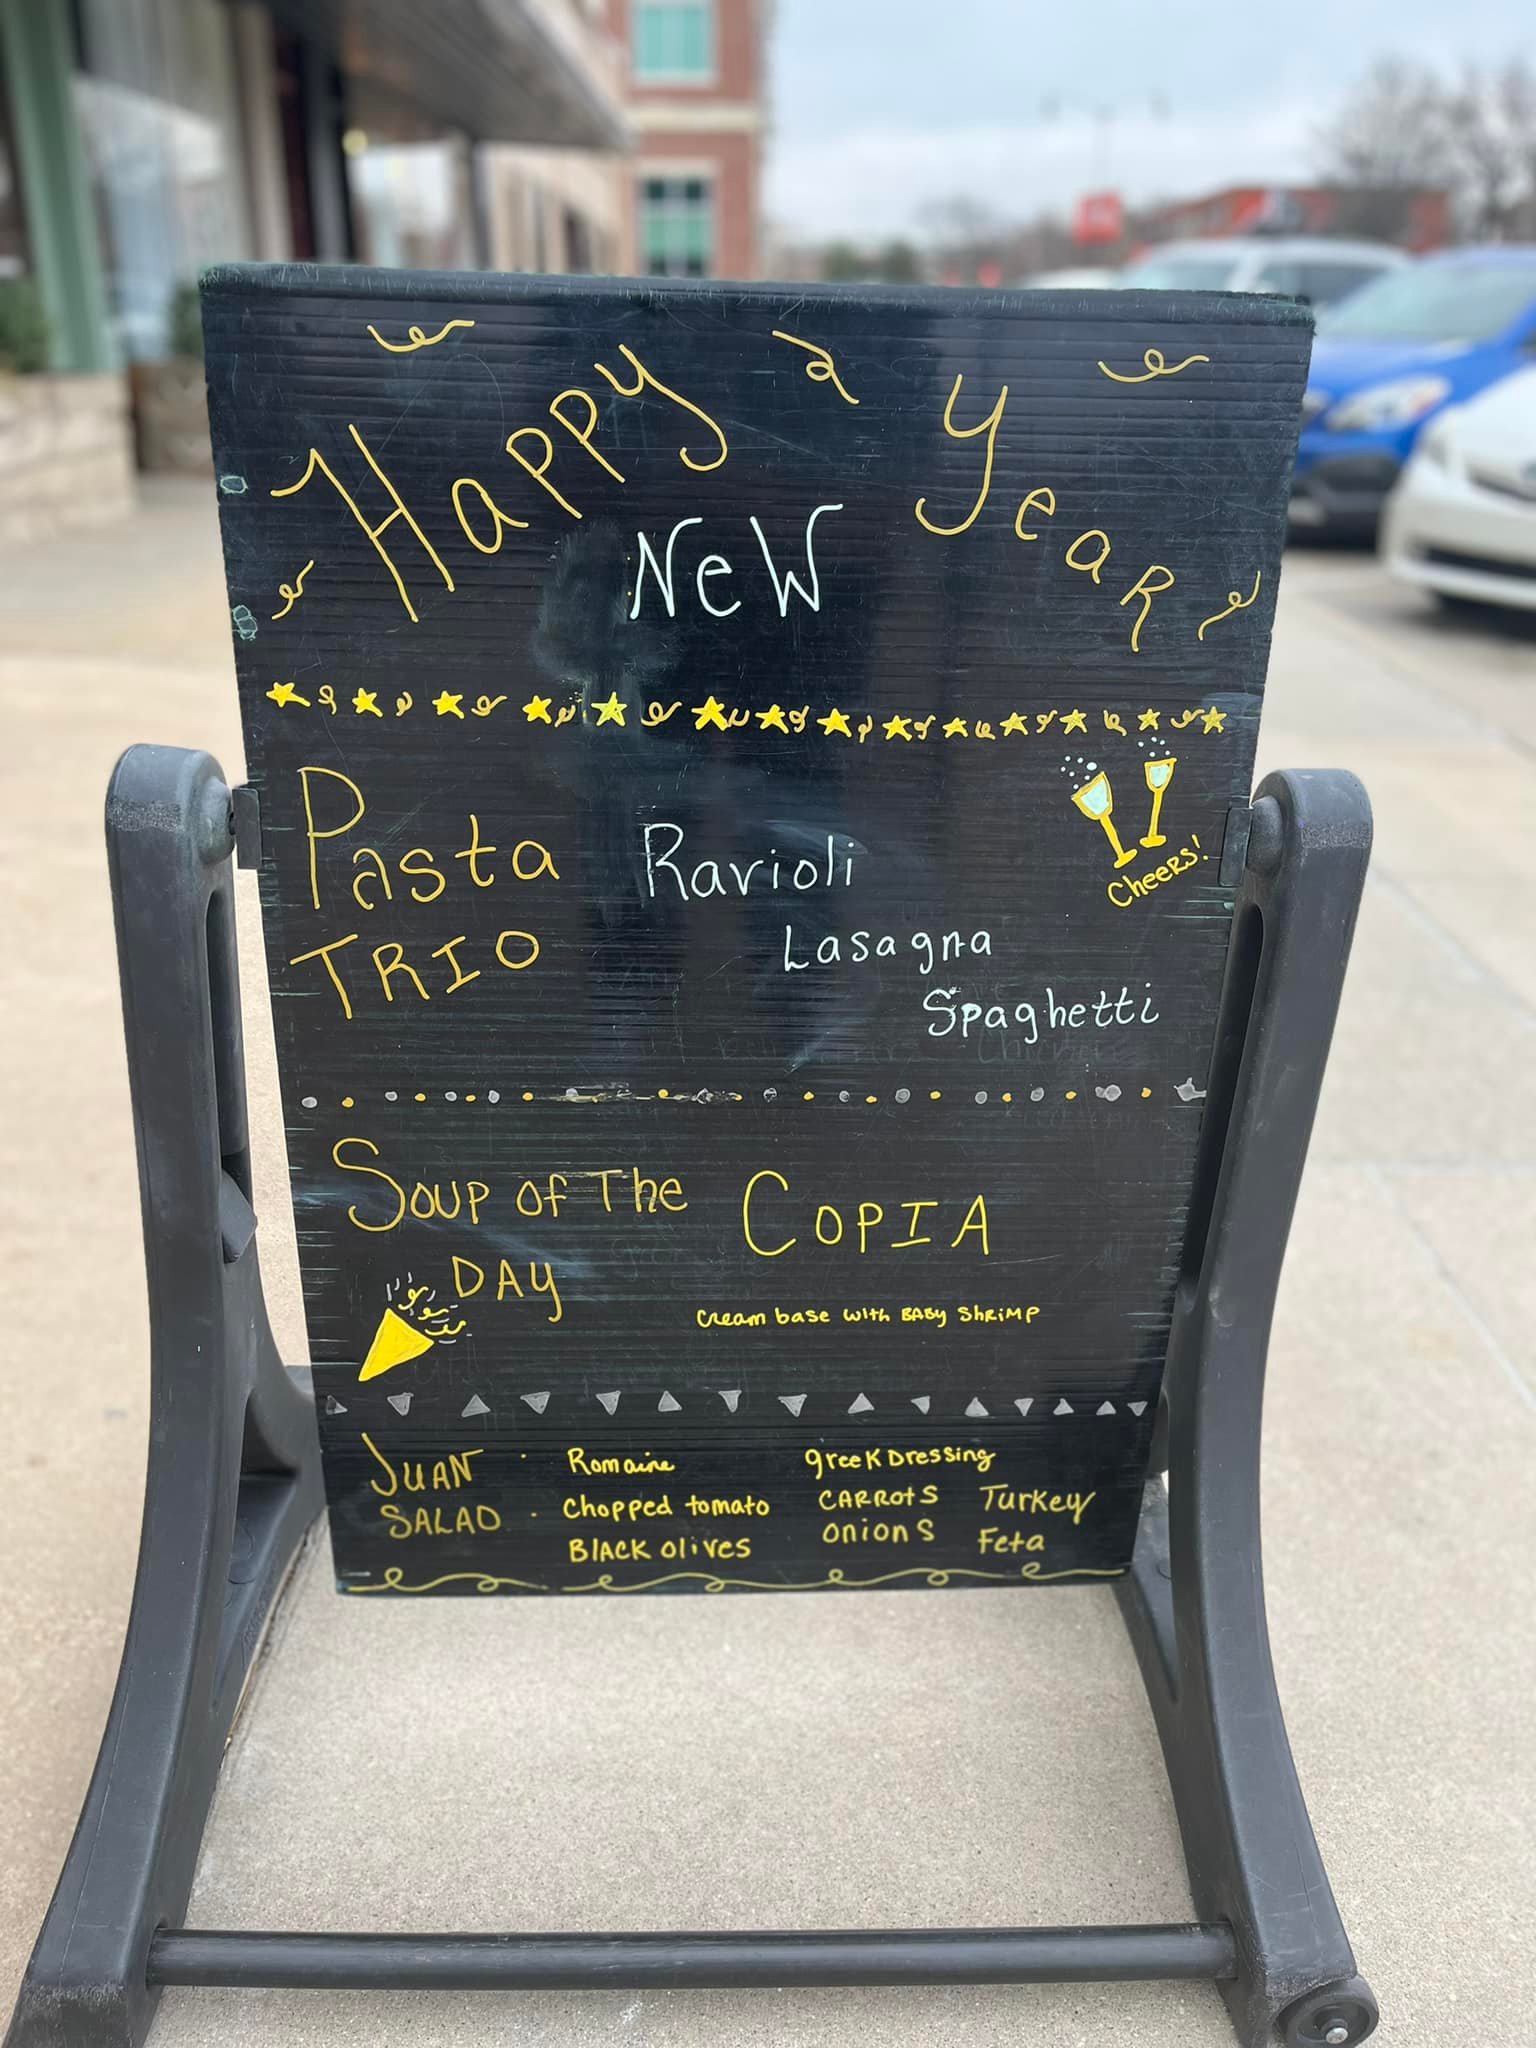 Happy New Year
Pasta Trio
Ravioli
Lasagna
Spaghetti
Cheers!
Soup of The Day
COPIA
Cream base with BABY Shrimp
JUAN SALAD
Romaine
Chopped tomato
BLACK olives
greek Dressing
CARROtS
OnionS
Turkey
Feta